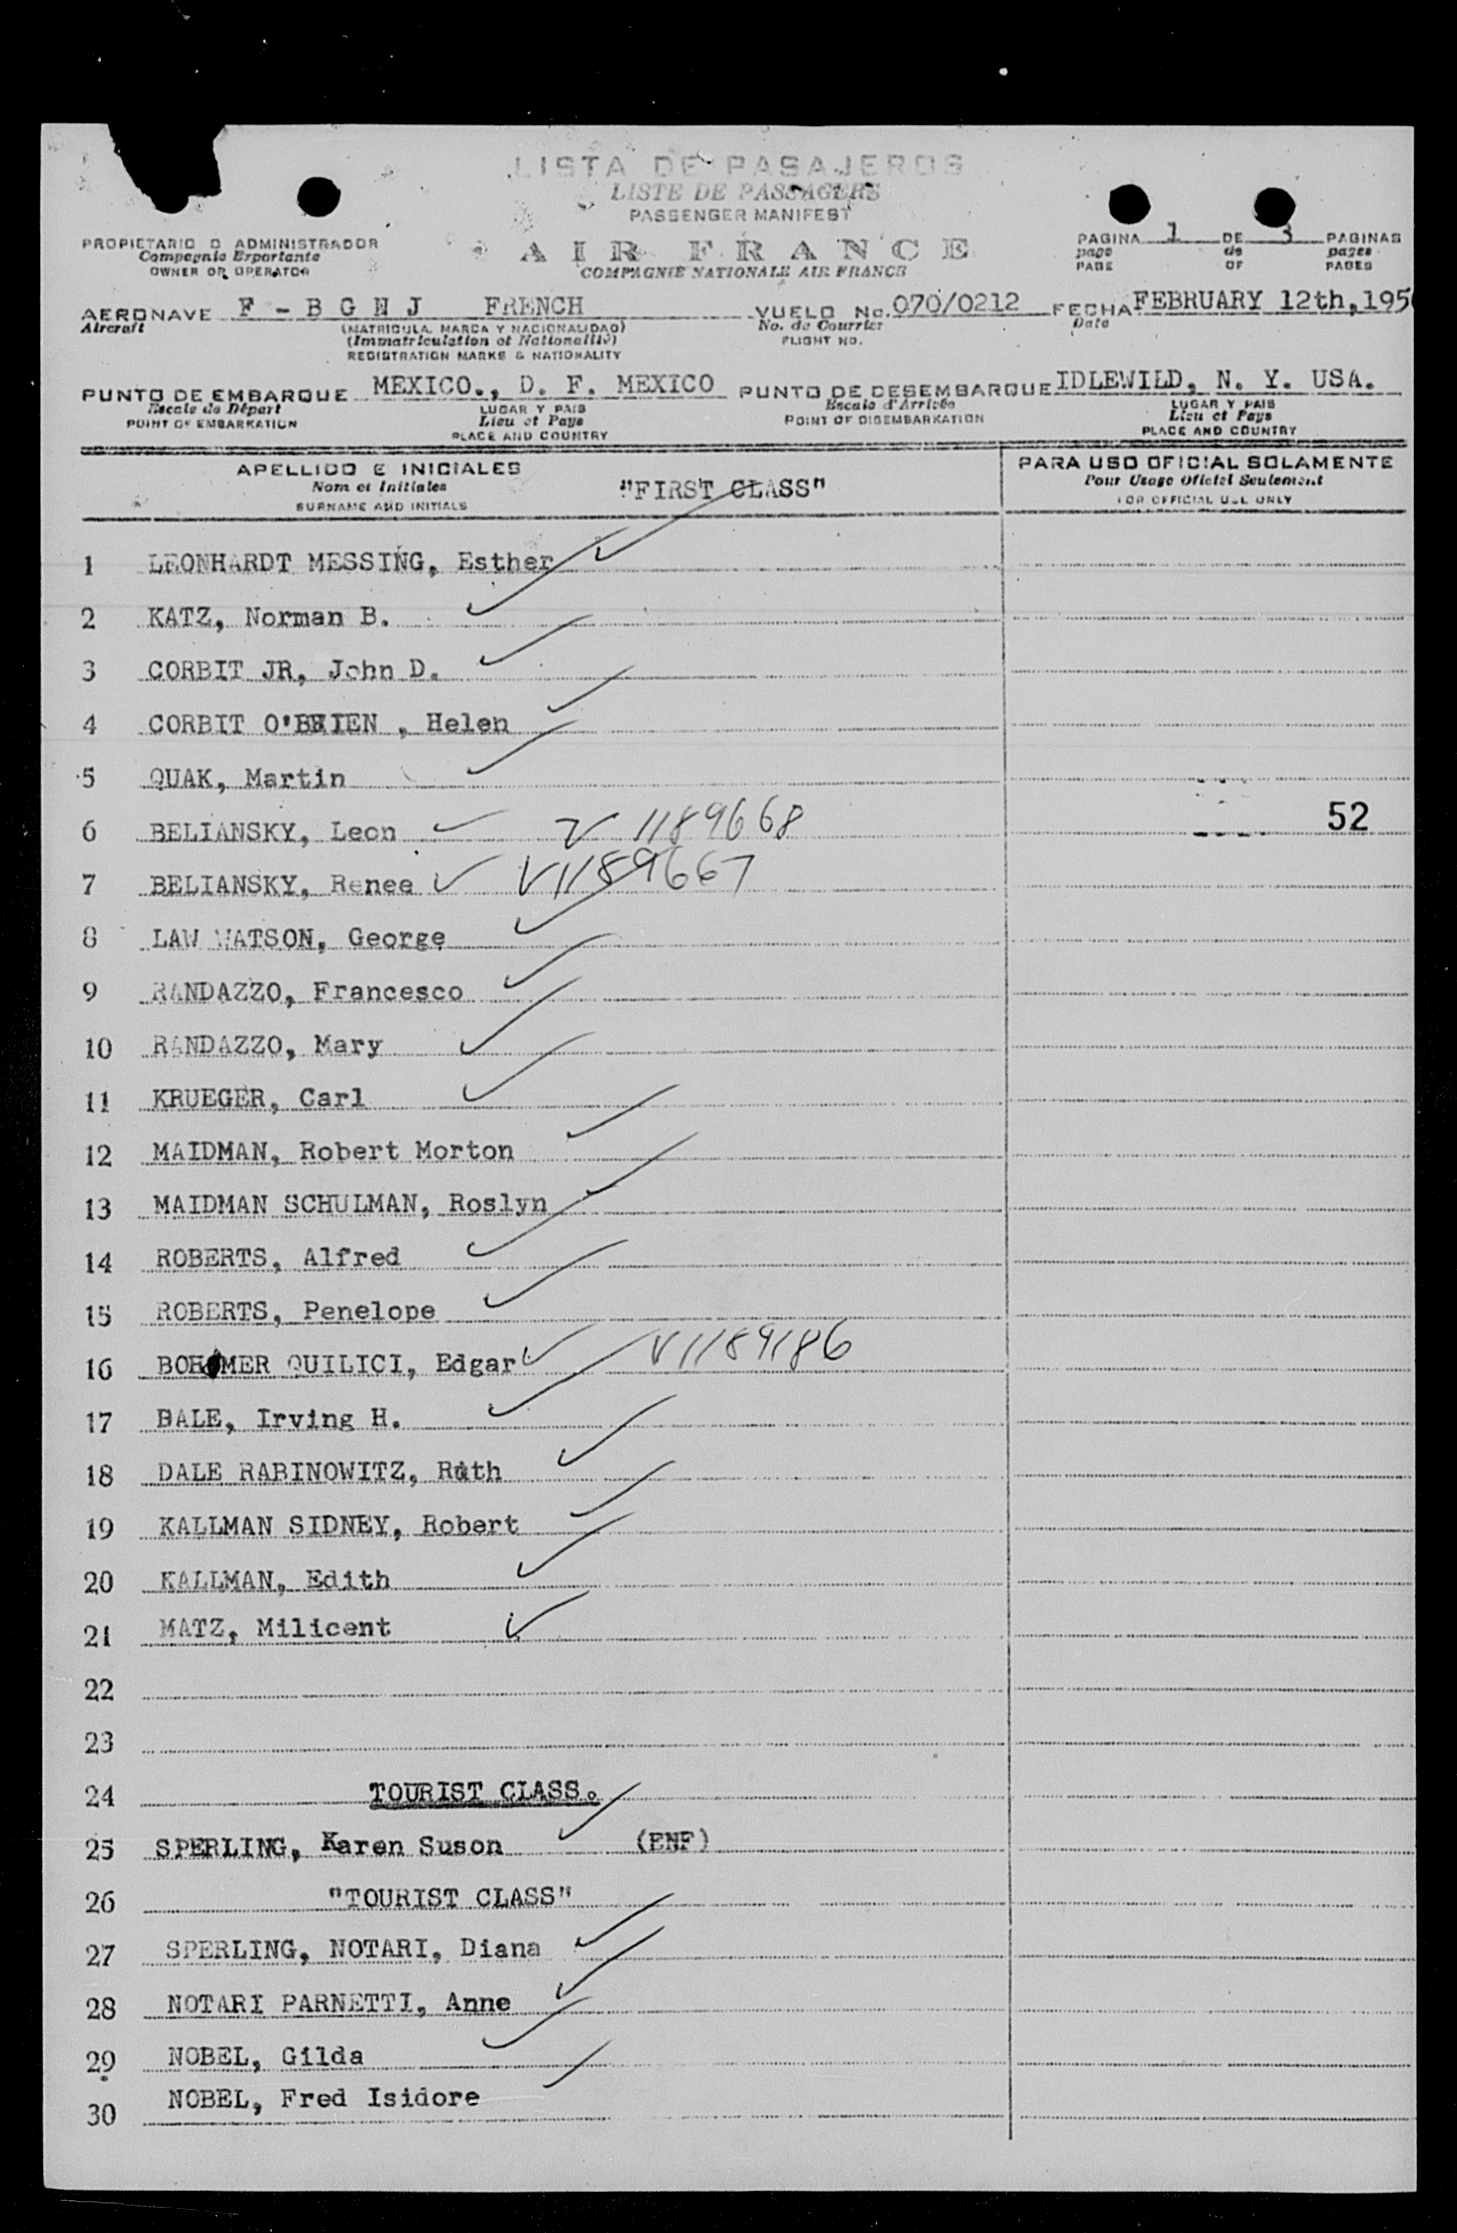 LISTA DE PASAJEROS
LISTE DE PASSAGERS
PASSENGER MANIFEST
PROPIETARIO O ADMINISTRADOR
Compagnie Exportante
OWNER OR OPERATOR
AIR FRANCE
COMPAGNIE NATIONALE AIR FRANCE
PAGINA 1 DE 3 PAGINAS
page de pages
PAGE OF PAGES
AERONAVE F - B G N J FRENCH VUELO No. 070/0212 FECHA FEBRUARY 12th, 195
Aircraft (MATRICULA, MARCA Y NACIONALIDAD) No. de Courrier Date
(Immatriculation et Nationalité) FLIGHT NO.
REGISTRATION MARKS & NATIONALITY
PUNTO DE EMBARQUE MEXICO., D. F. MEXICO PUNTO DE DESEMBARQUE IDLEWILD, N. Y. USA.
Escale de Départ LUGAR Y PAIS Escale d'Arrivée LUGAR Y PAIS
POINT OF EMBARKATION Lieu et Pays POINT OF DISEMBARKATION Lieu et Pays
PLACE AND COUNTRY PLACE AND COUNTRY
APELLIDO E INICIALES PARA USO OFICIAL SOLAMENTE
Nom et Initiales "FIRST CLASS" Pour Usage Officiel Seulement
SURNAME AND INITIALS FOR OFFICIAL USE ONLY
1 LEONHARDT MESSING, Esther
2 KATZ, Norman B.
3 CORBIT JR, John D.
4 CORBIT O'BRIEN , Helen
5 QUAK, Martin
6 BELIANSKY, Leon V 1189668 52
7 BELIANSKY, Renee V1189667
8 LAW WATSON, George
9 RANDAZZO, Francesco
10 RANDAZZO, Mary
11 KRUEGER, Carl
12 MAIDMAN, Robert Morton
13 MAIDMAN SCHULMAN, Roslyn
14 ROBERTS, Alfred
15 ROBERTS, Penelope
16 QUILICI, Edgar V1189186
17 BALE, Irving H.
18 DALE RABINOWITZ, Ruth
19 KALLMAN SIDNEY, Robert
20 KALLMAN, Edith
21 MATZ, Milicent
22
23
24 TOURIST CLASS.
25 SPERLING, Karen Suson (ENF)
26 "TOURIST CLASS"
27 SPERLING, NOTARI, Diana
28 NOTARI PARNETTI, Anne
29 NOBEL, Gilda
30 NOBEL, Fred Isidore